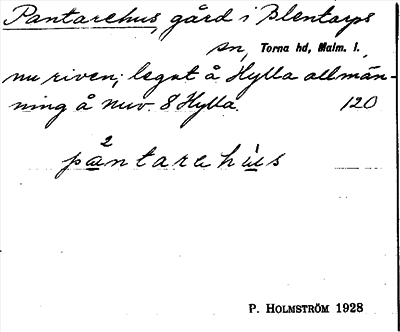 Pantarehus, gård i Blentarps
sn, Torna hd, Malm. l.,
nu riven; legat å Hylla allmän-
ning å nuv. 8 Hylla. 120
2
pantarehùs
P. HOLMSTRÖM 1928